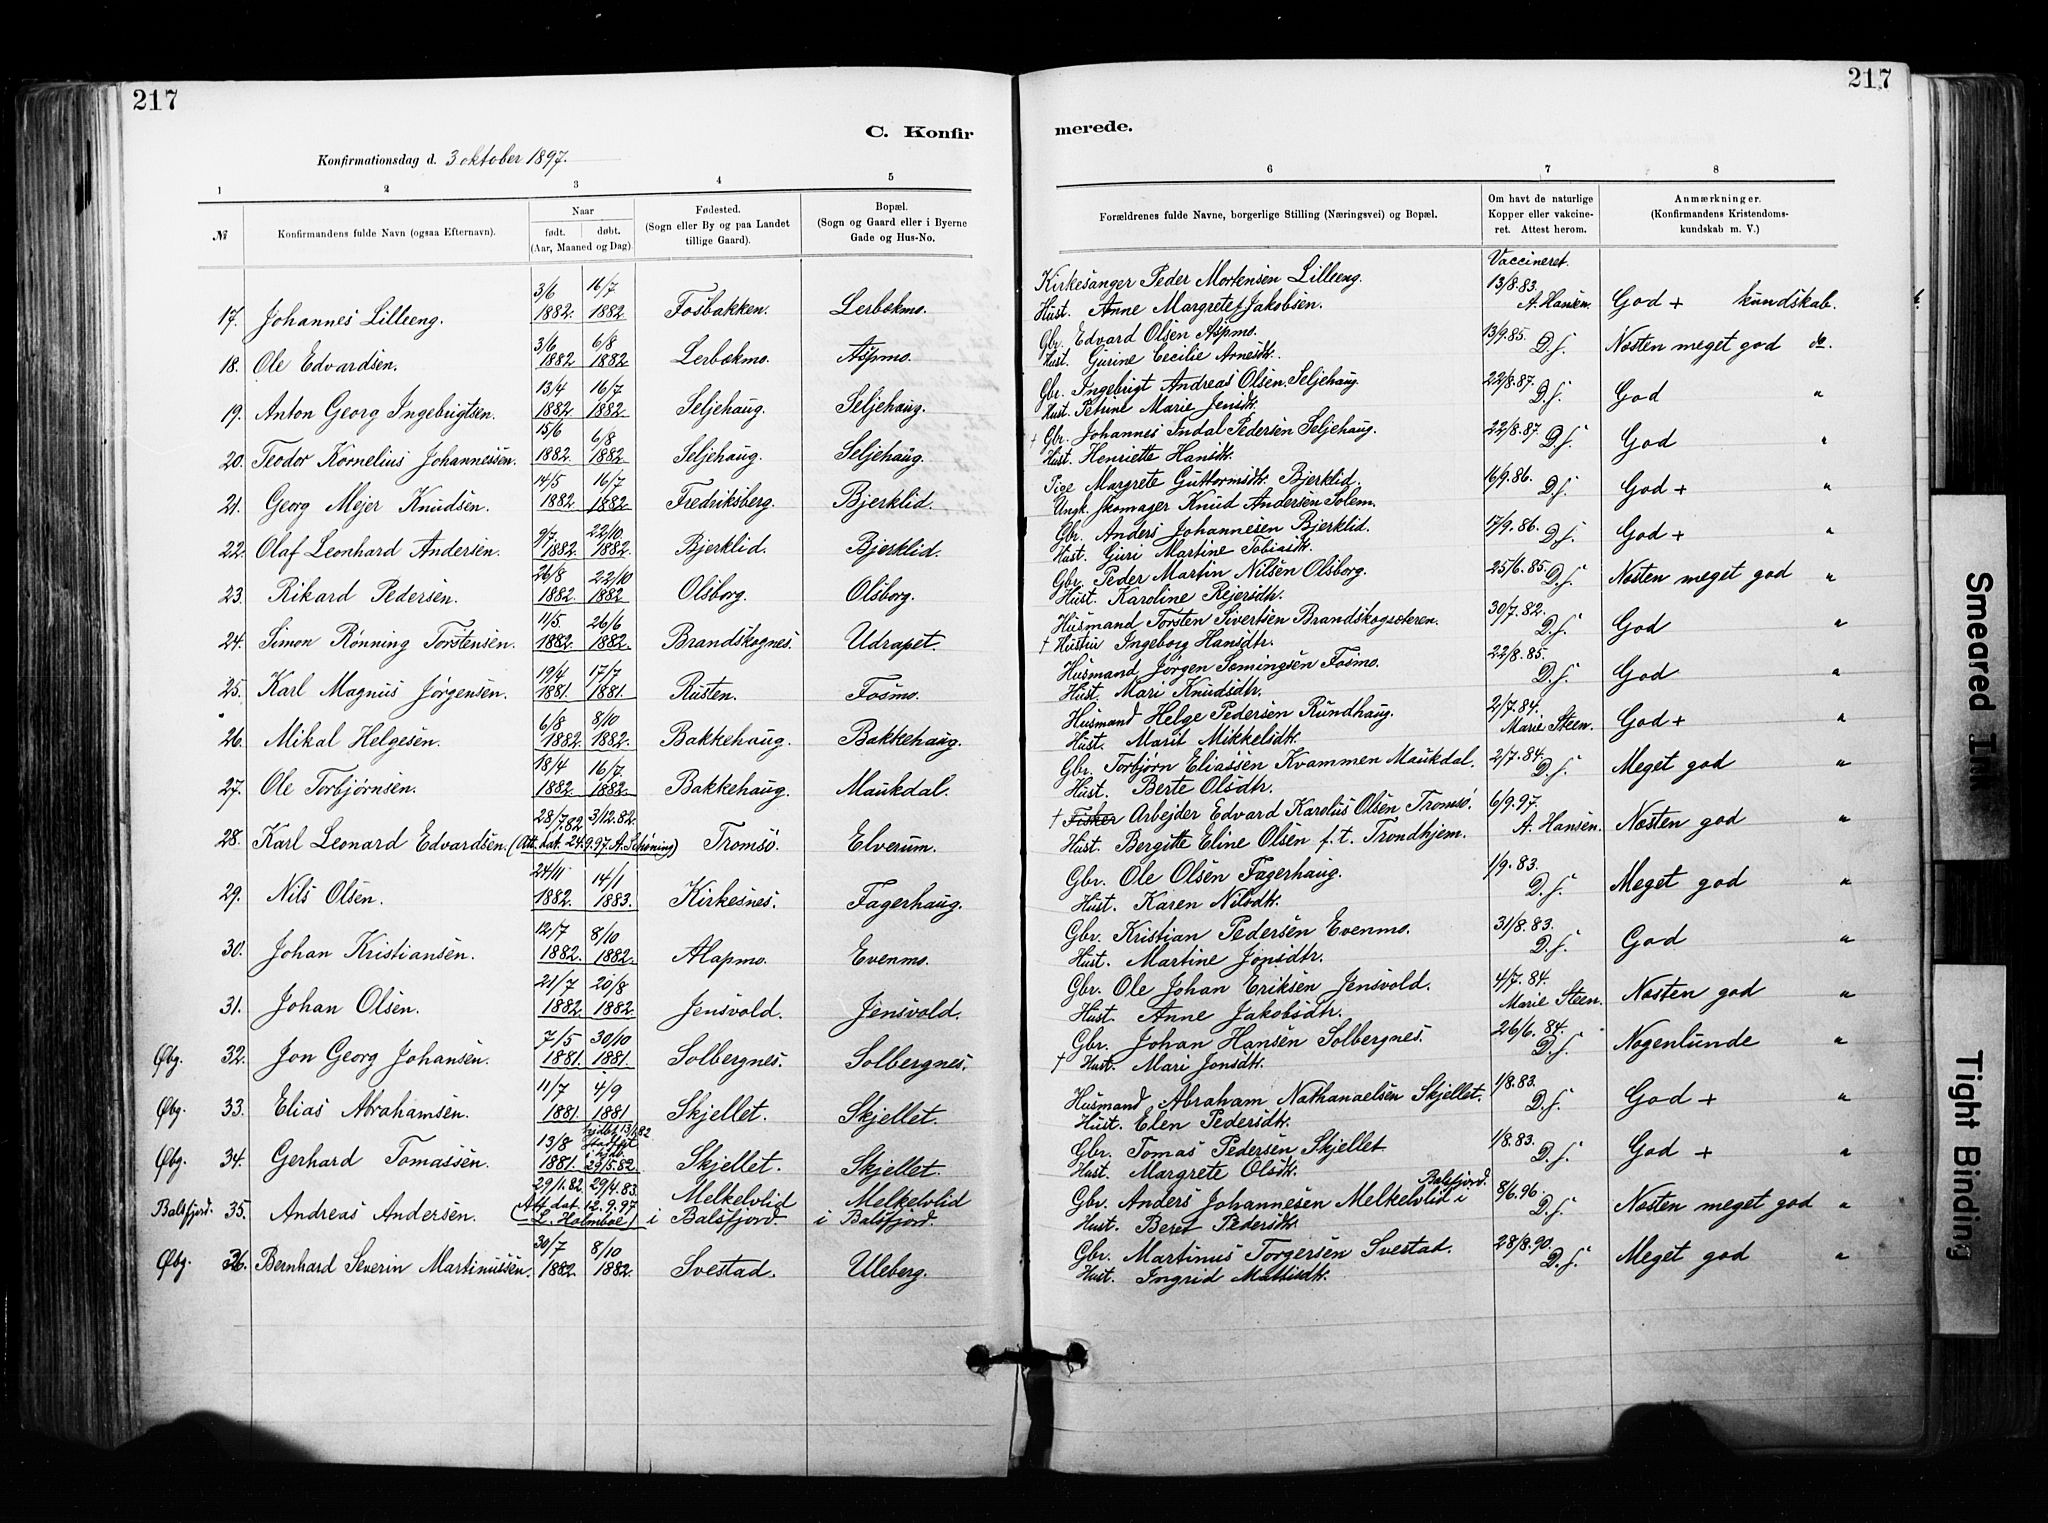 217
217
C. Konfir
merede.
Konfirmationsdag d. 3 oktober 1897.
1 2 3 4 5 6 7 8
№ Konfirmandens fulde Navn (ogsaa Efternavn). Naar født. døbt. (Aar, Maaned og Dag). Fødested. (Sogn eller By og paa Landet tillige Gaard). Bopæl. (Sogn og Gaard eller i Byerne Gade og Hus-No. Forældrenes fulde Navne, borgerlige Stilling (Næringsvei) og Bopæl. Om havt de naturlige Kopper eller vakcineret. Attest herom. Anmærkninger. (Konfirmandens Kristendomskundskab m. V.)
Vaccineret.
17. Johannes Lilleeng. 3/6 1882. 16/7 1882. Fosbakken. Lerbækmo. Kirkesanger Peder Mortensen Lilleeng. 13/8.83. A. Hansen. God + kundskab.
Hust. Anne Margrete Jakobsen.
18. Ole Edvardsen. 3/6 1882 6/8 1882 Lerbækmo. Aspmo. Gbr. Edvard Olsen Aspmo. 13/9.85. D.s. Næsten meget god do.
Hust. Gurine Cecilie Arnesdtr.
19. Anton Georg Ingebrigtsen. 13/4 1882 16/7 1882. Seljehaug. Seljehaug. Gbr. Ingebrigt Andreas Olsen Seljehaug. 22/8.87. D.s. God "
Hust. Petrine Marie Jensdtr.
20. Teodor Kornelius Johannessen. 15/6 1882. 6/8 1882. Seljehaug. Seljehaug. † Gbr. Johannes Indal Pedersen Seljehaug. 22/8.87. D.s. God "
Hust. Henriette Hansdtr.
21. Georg Mejer Knudsen. 14/5 1882. 16/7 1882 Fredriksberg. Bjerklid. Pige Margrete Guttormsdtr. Bjerklid. 16/9.86. D.s. God + "
Ungk. Skomager Knud Andersen Solem.
22. Olaf Leonhard Andersen. 9/7 1882. 22/10 1882. Bjerklid. Bjerklid. Gbr. Anders Johannesen Bjerklid. 17/9.86. D.s. God + "
Hust. Guri Martine Tobiasdtr.
23. Rikard Pedersen. 26/8 1882. 22/10 1882 Olsborg. Olsborg. Gbr. Peder Martin Nilsen Olsborg. 25/6.85. D.s. Næsten meget god "
Hust. Karoline Rejersdtr.
24. Simon Rønning Torstensen. 11/5 1882. 26/6 1882. Brandskognes. Udrapet. Husmand Torsten Sivertsen Brandskogsæteren. 30/7.82. D.s. God "
† Hustru Ingeborg Hansdtr.
25. Karl Magnus Jørgensen. 19/4 1881. 17/7 1881. Rusten. Fosmo. Husmand Jørgen Sæmingsen Fosmo. 22/8.85. D.s. God "
Hust. Mari Knudsdtr.
26. Mikal Helgesen. 6/8 1882. 8/10 1882. Bakkehaug. Bakkehaug. Husmand Helge Pedersen Rundhaug. 2/7.84. Marie Steen. God + "
Hust. Marit Mikkelsdtr.
27. Ole Torbjørnsen. 18/4 1882. 16/7. 1882. Bakkehaug. Maukdal. Gbr. Torbjørn Eliassen Kvammen Maukdal. 2/7.84. D.s. Meget god "
Hust. Berte Olsdtr.
28. Karl Leonard Edvardsen. 28/7.82 3/12.82. (Att. dat. 24.9.97. A. Schøning) Tromsø. Elverum. † Fisker Arbejder Edvard Karelius Olsen Tromsø. 6/9.97. A. Hansen. Næsten god "
Hust. Bergitte Eline Olsen f.t. Trondhjem.
29. Nils Olsen. 24/11 1882. 14/1 1883. Kirkesnes. Fagerhaug. Gbr. Ole Olsen Fagerhaug. 1/9.83. D.s. Meget god "
Hust. Karen Nilsdtr.
30. Johan Kristiansen. 12/7 1882. 8/10 1882. Alapmo. Evenmo. Gbr. Kristian Pedersen Evenmo. 31/8.83. D.s. God "
Hust. Martine Jonsdtr.
31. Johan Olsen. 21/7 1882. 20/8 1882. Jensvold. Jensvold. Gbr. Ole Johan Eriksen Jensvold. 4/7.84. Marie Steen. Næsten god "
Hust. Anne Jakobsdtr.
Øbg. 32. Jon Georg Johansen. 7/5 1881. 30/10 1881. Solbergnes. Solbergnes. Gbr. Johan Hansen Solbergnes. 26/6.84. D.s. Nogenlunde "
† Hust. Mari Jonsdtr.
Øbg. 33. Elias Abrahamsen. 11/7 1881. 4/9 1881 Skjellet. Skjellet. Husmand Abraham Nathanaelsen Skjellet. 1/8.83. D.s. God + "
Hust. Elen Pedersdtr.
Øbg. 34. Gerhard Tomassen. 13/8 1881. 29/5.82. Skjellet. Skjellet. Gbr. Tomas Pedersen Skjellet 1/8.83. D.s. God + "
Hust. Margrete Olsdtr.
Balsfjord. 35. Andreas Andersen. 29/1.82. 29/4.83. (Att. dat. 12.9.97 L. Holmboe) Melkelvlid i Balsfjord. Melkelvlid i Balsfjord. Gbr. Anders Johannesen Melkelvlid i Balsfjord. 8/6.96. D.s. Næsten meget god "
Hust. Beret Pedersdtr.
Øbg. 36. Bernhard Severin Martinussen. 30/7 1882. 8/10 1882. Svestad. Uleberg. Gbr. Martinus Torgersen Svestad. 28/8.90. D.s. Meget god "
Hust. Ingrid Mattisdtr.
Smeared Ink
Tight Binding